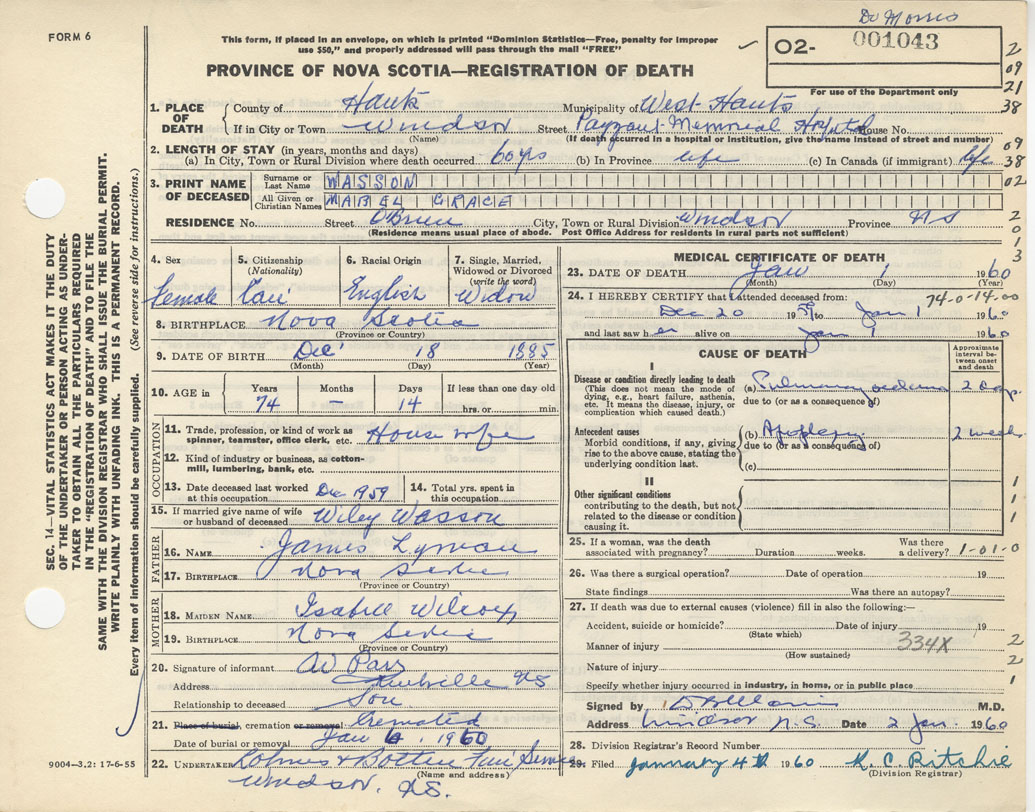 FORM 6
This form, if placed in an envelope, on which is printed "Dominion Statistics—Free, penalty for improper
use $50," and properly addressed will pass through the mail "FREE"
PROVINCE OF NOVA SCOTIA—REGISTRATION OF DEATH
Dr Morris
O2- 001043
For use of the Department only
2
09
21
38
09
38
02
2
0
1
3
SEC. 14—VITAL STATISTICS ACT MAKES IT THE DUTY
OF THE UNDERTAKER OR PERSON ACTING AS UNDER-
TAKER TO OBTAIN ALL THE PARTICULARS REQUIRED
IN THE "REGISTRATION OF DEATH" AND TO FILE THE
SAME WITH THE DIVISION REGISTRAR WHO SHALL ISSUE THE BURIAL PERMIT.
WRITE PLAINLY WITH UNFADING INK. THIS IS A PERMANENT RECORD.
Every item of information should be carefully supplied. (See reverse side for instructions.)
1. PLACE OF DEATH
County of Hants Municipality of West Hants
If in City or Town Windsor Street Payzant Memorial Hospital House No.
(Name) (If death occurred in a hospital or institution, give the name instead of street and number)
2. LENGTH OF STAY (in years, months and days)
(a) In City, Town or Rural Division where death occurred 60 yrs (b) In Province life (c) In Canada (if immigrant) life
3. PRINT NAME OF DECEASED
Surname or Last Name WASSON
All Given or Christian Names MABEL GRACE
RESIDENCE No. Street O'Brien City, Town or Rural Division Windsor Province N S
(Residence means usual place of abode. Post Office Address for residents in rural parts not sufficient)
4. Sex 5. Citizenship (Nationality) 6. Racial Origin 7. Single, Married, Widowed or Divorced (write the word)
Female Can English Widow
8. BIRTHPLACE Nova Scotia
(Province or Country)
9. DATE OF BIRTH Dec 18 1885
(Month) (Day) (Year)
10. AGE in Years Months Days If less than one day old
74 — 14 hrs. or min.
OCCUPATION
11. Trade, profession, or kind of work as
spinner, teamster, office clerk, etc. House wife
12. Kind of industry or business, as cotton-
mill, lumbering, bank, etc.
13. Date deceased last worked at this occupation Dec 1959 14. Total yrs. spent in this occupation
15. If married give name of wife or husband of deceased Wiley Wasson
FATHER
16. NAME James Lyman
17. BIRTHPLACE Nova Scotia
(Province or Country)
MOTHER
18. MAIDEN NAME Isabell Wilcox
19. BIRTHPLACE Nova Scotia
(Province or Country)
20. Signature of informant
Address NS
Relationship to deceased Son
21. Place of burial, cremation or removal Cremated
Date of burial or removal Jan 6, 1960
22. UNDERTAKER
(Name and address)
Windsor, N.S.
9004—3.2: 17-6-55
MEDICAL CERTIFICATE OF DEATH
23. DATE OF DEATH Jan 1 1960
(Month) (Day) (Year)
74-0-14-00
24. I HEREBY CERTIFY that I attended deceased from:
Dec 20 1959 to Jan 1 1960
and last saw her alive on Jan 1 1960
CAUSE OF DEATH
Approximate interval between onset and death
I
Disease or condition directly leading to death
(This does not mean the mode of dying, e.g., heart failure, asthenia, etc. It means the disease, injury, or complication which caused death.)
(a) Pulmonary oedema 2 days
due to (or as a consequence of)
Antecedent causes
Morbid conditions, if any, giving rise to the above cause, stating the underlying condition last.
(b) Apoplexy 2 weeks
due to (or as a consequence of)
(c)
II
Other significant conditions contributing to the death, but not related to the disease or condition causing it.
1
1
1
25. If a woman, was the death associated with pregnancy? Duration weeks. Was there a delivery? 1-01-0
26. Was there a surgical operation? Date of operation 19
State findings Was there an autopsy?
27. If death was due to external causes (violence) fill in also the following:—
Accident, suicide or homicide? Date of injury 19
(State which)
Manner of injury 334X 2
(How sustained)
Nature of injury 2
Specify whether injury occurred in industry, in home, or in public place 1
Signed by M.D.
Address Windsor N.S. Date 2 Jan. 1960
28. Division Registrar's Record Number
29. Filed January 4th 1960 K. C. Ritchie
(Division Registrar)